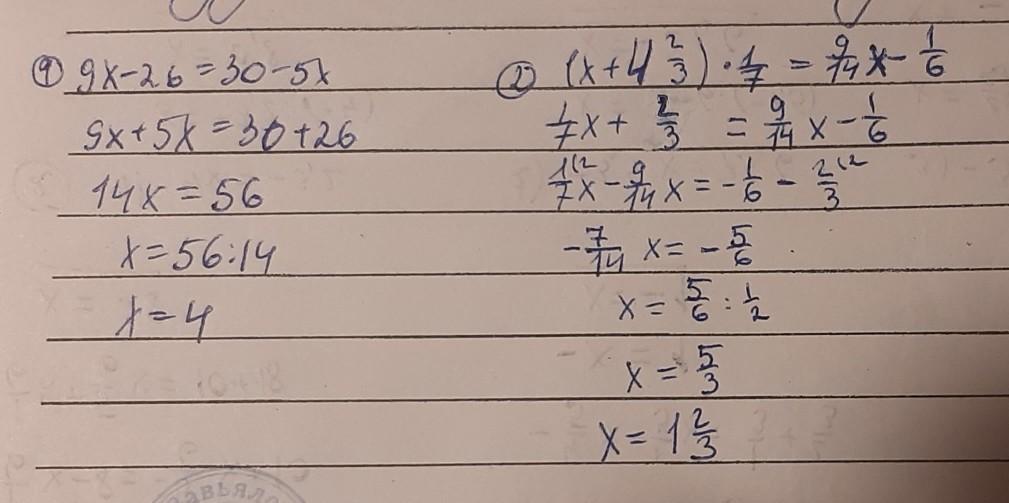 ① 9x-26=30-5x
9x+5x=30+26
14x=56
x=56:14
x=4
② (x+4 2/3)·1/7 = 9/14 x - 1/6
1/7 x + 2/3 = 9/14 x - 1/6
1(2/7 x - 9/14 x = - 1/6 - 2(2/3
- 7/14 x = - 5/6
x = 5/6 : 1/2
x = 5/3
x = 1 2/3